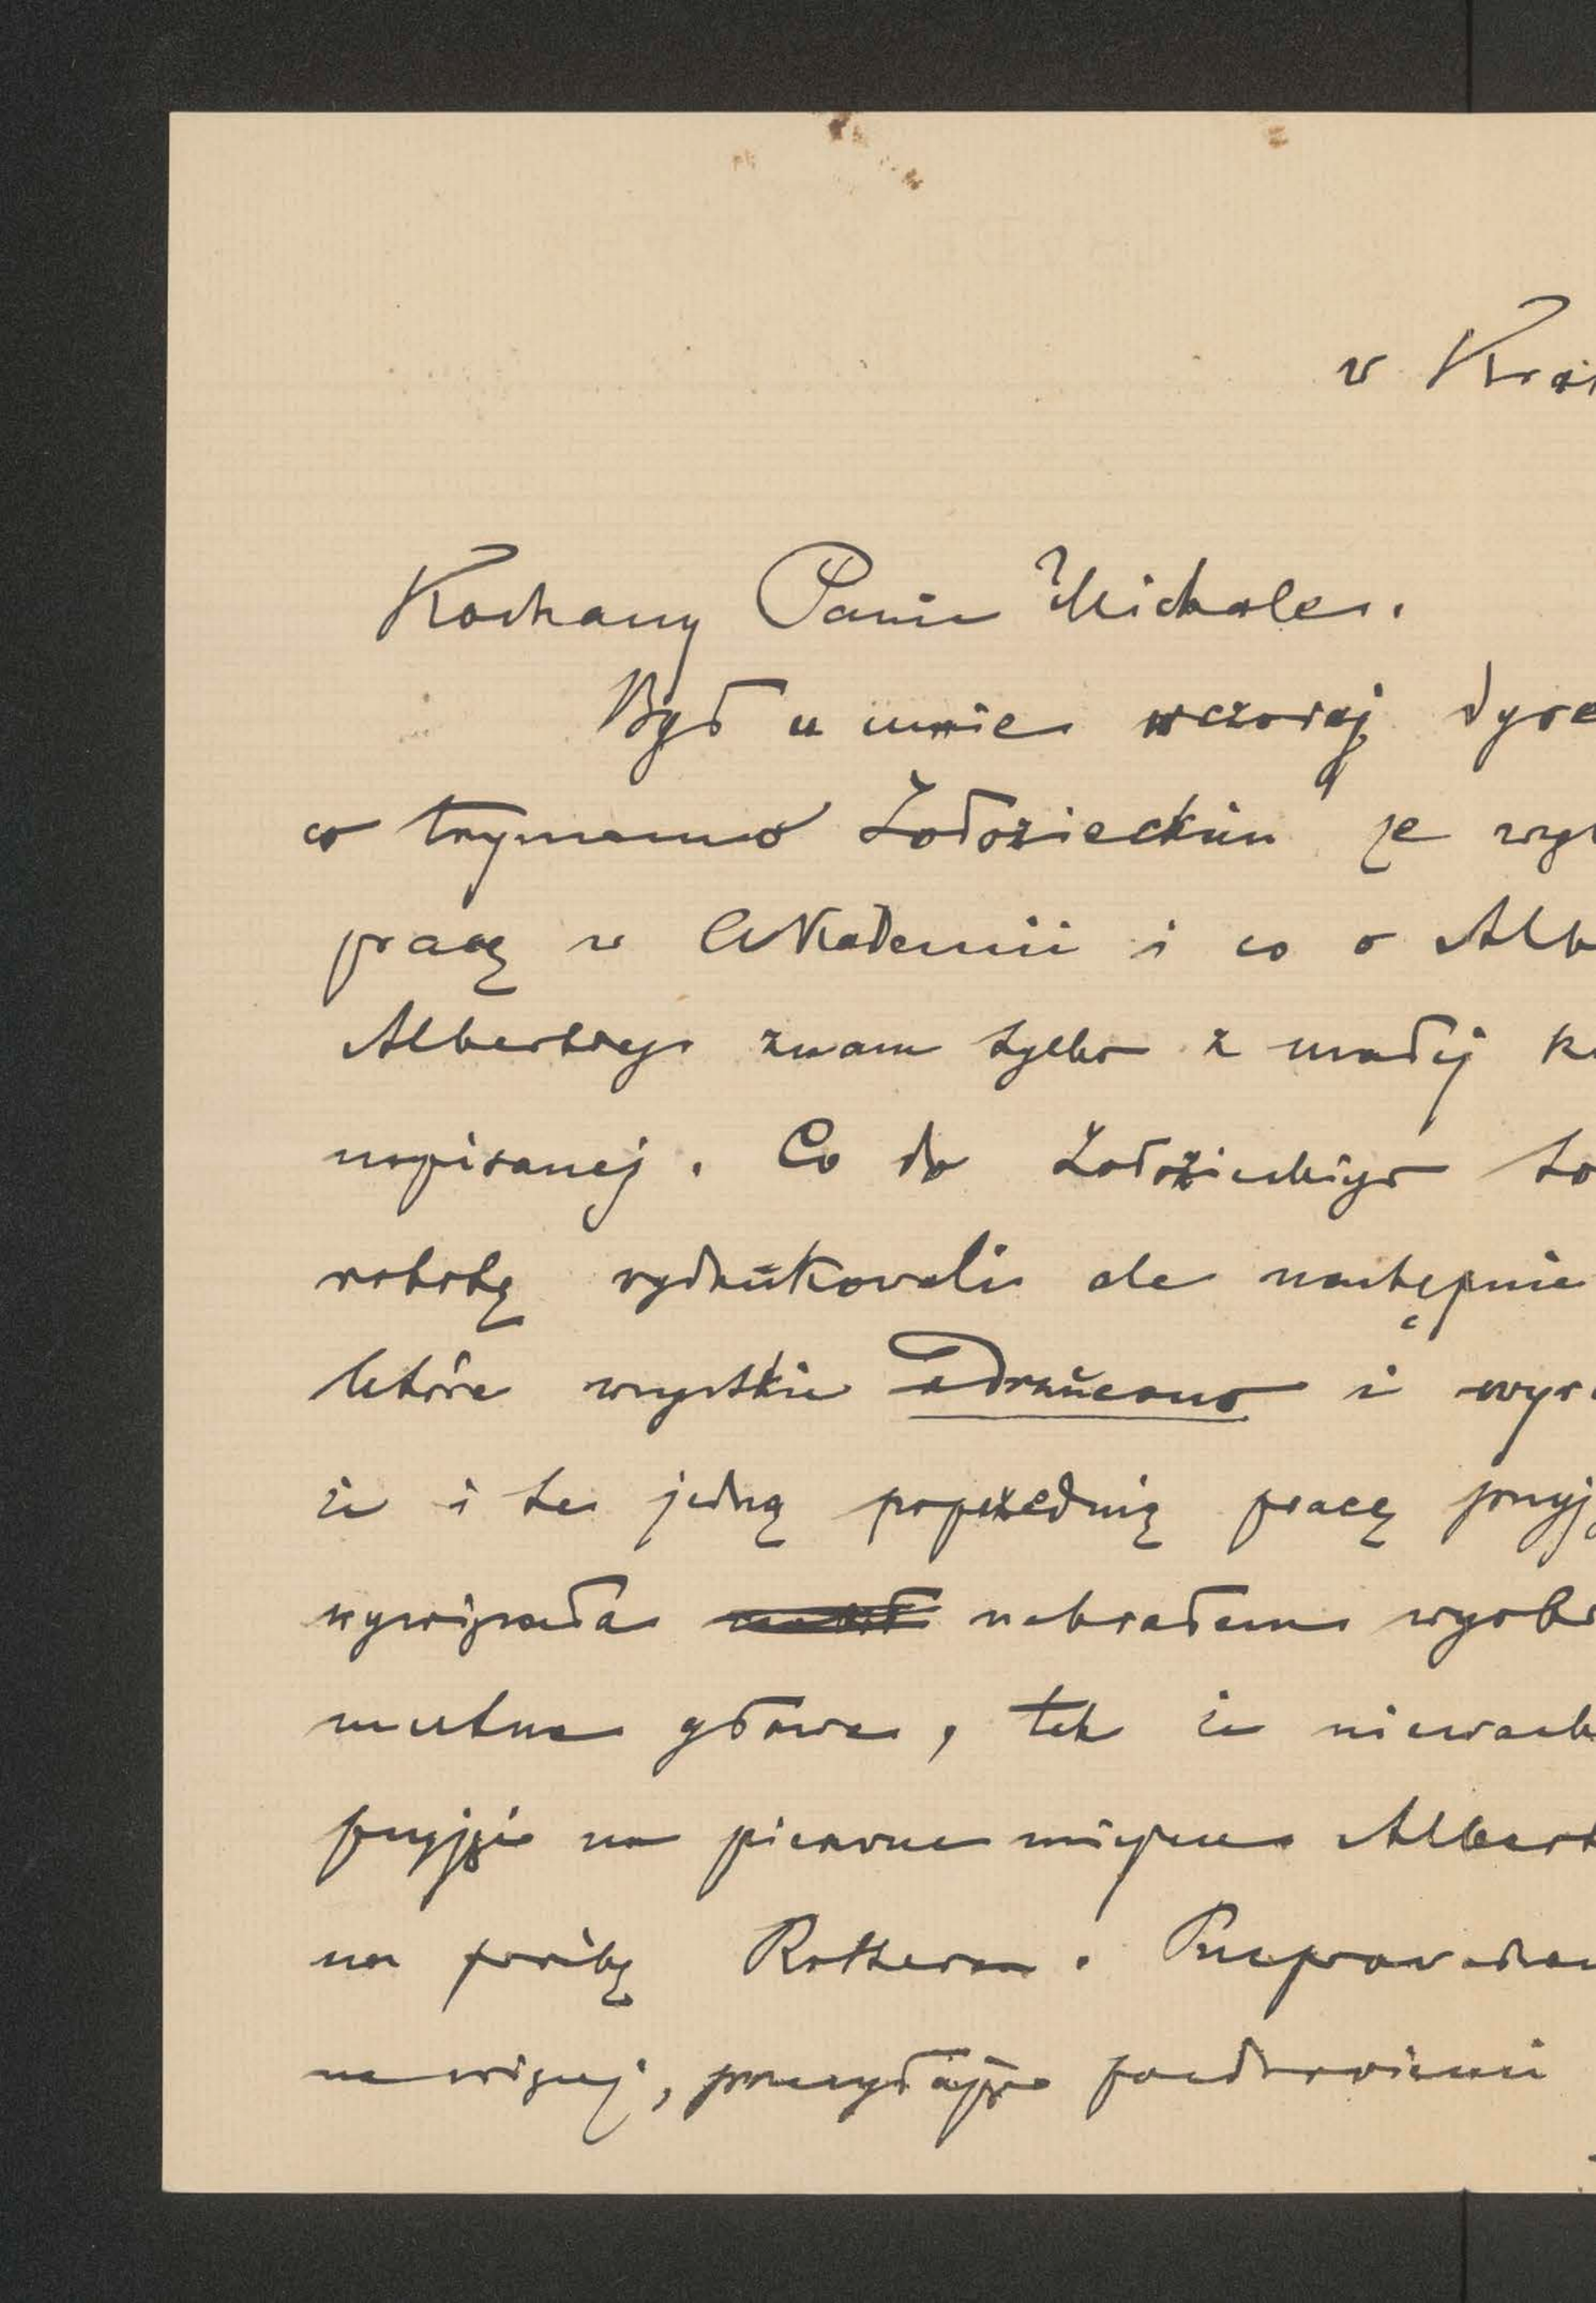 w Kra
Kochany Panie Michale.
Był u mnie wczoraj dyre
co trzymano o Żołozieckim że wyd
pracę w Akademii i co o Alb
Albertym znam tylko z małej k
napisanej. Co do Żołozieckiego to
robotę wydrukowali ale następnie
które wszystkie odrzucono i wyra
że i te jedną poprzednią pracę przyj
wywiązała nabrałem wyobr
mętna głowa, tak że
przyjęcie na pierwsze miejsce Albert
na próbę Rottera. Przeprowadzen
na więcej, przesyłając pozdrowienie